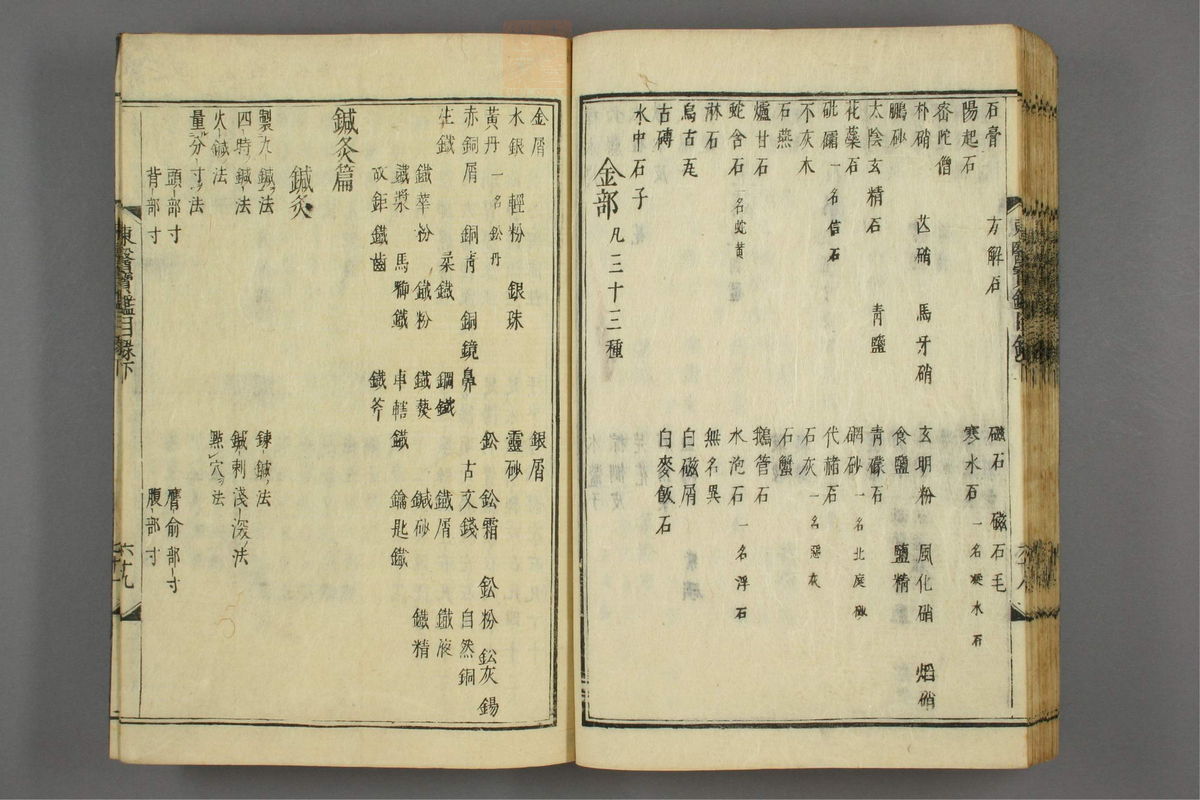 石膏 方解石 磁石 磁石毛
陽起石 寒水石 一名凝水石
密陀僧
朴硝 芒硝 馬牙硝 玄明粉 風化硝 焰硝
鵬砂 食鹽 鹽精
太陰玄精石 青鹽 青礞石
花蘂石 硇砂 一名北庭砂
砒礵 一名信石 代赭石
不灰木 石灰 一名惡灰
石燕 石蟹
爐甘石 鵝管石
蛇含石 一名蛇黄 水泡石 一名浮石
淋石 無名異
烏古瓦 白磁屑
古磚 白麥飯石
水中石子
金部 凡三十三種
金屑 銀屑
水銀 輕粉 銀珠 靈砂
黃丹 一名鈆丹 鈆 鈆霜 鈆粉 鈆灰 錫
赤銅屑 銅青 銅鏡鼻 古文錢 自然銅
生鐵 柔鐵 鋼鐵 鐵屑 鐵液
鐵華粉 鐵粉 鐵爇 鍼砂 鐵精
鐵漿 馬啣鐵 車轄鐵 鑰匙鐵
故鉅鐵齒 鐵斧
鍼灸篇
鍼灸
製九鍼ノ法 鍊ノ鍼ノ法
四時鍼ノ法 鍼刺淺深ノ法
火鍼法 㸃穴ノ法
量分寸ノ法
頭部寸 膺俞部寸
背部寸 腹部寸
東醫寶鑑目錄下
六十九